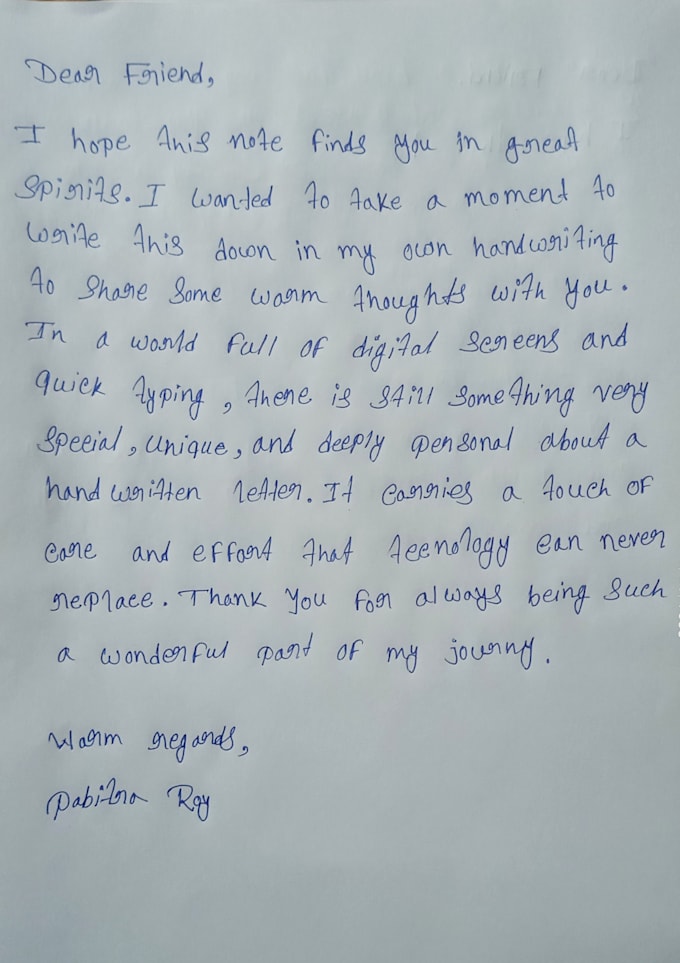 Dear Friend,
I hope this note finds you in great
Spirits. I wanted to take a moment to
write this down in my own handwriting
to share some warm thoughts with you.
In a world full of digital screens and
quick typing, there is still something very
special, unique, and deeply personal about a
hand written letter. It carries a touch of
care and effort that teenology can never
replace. Thank you for always being such
a wonderful part of my journy.
Warm regards,
Pabitra Roy